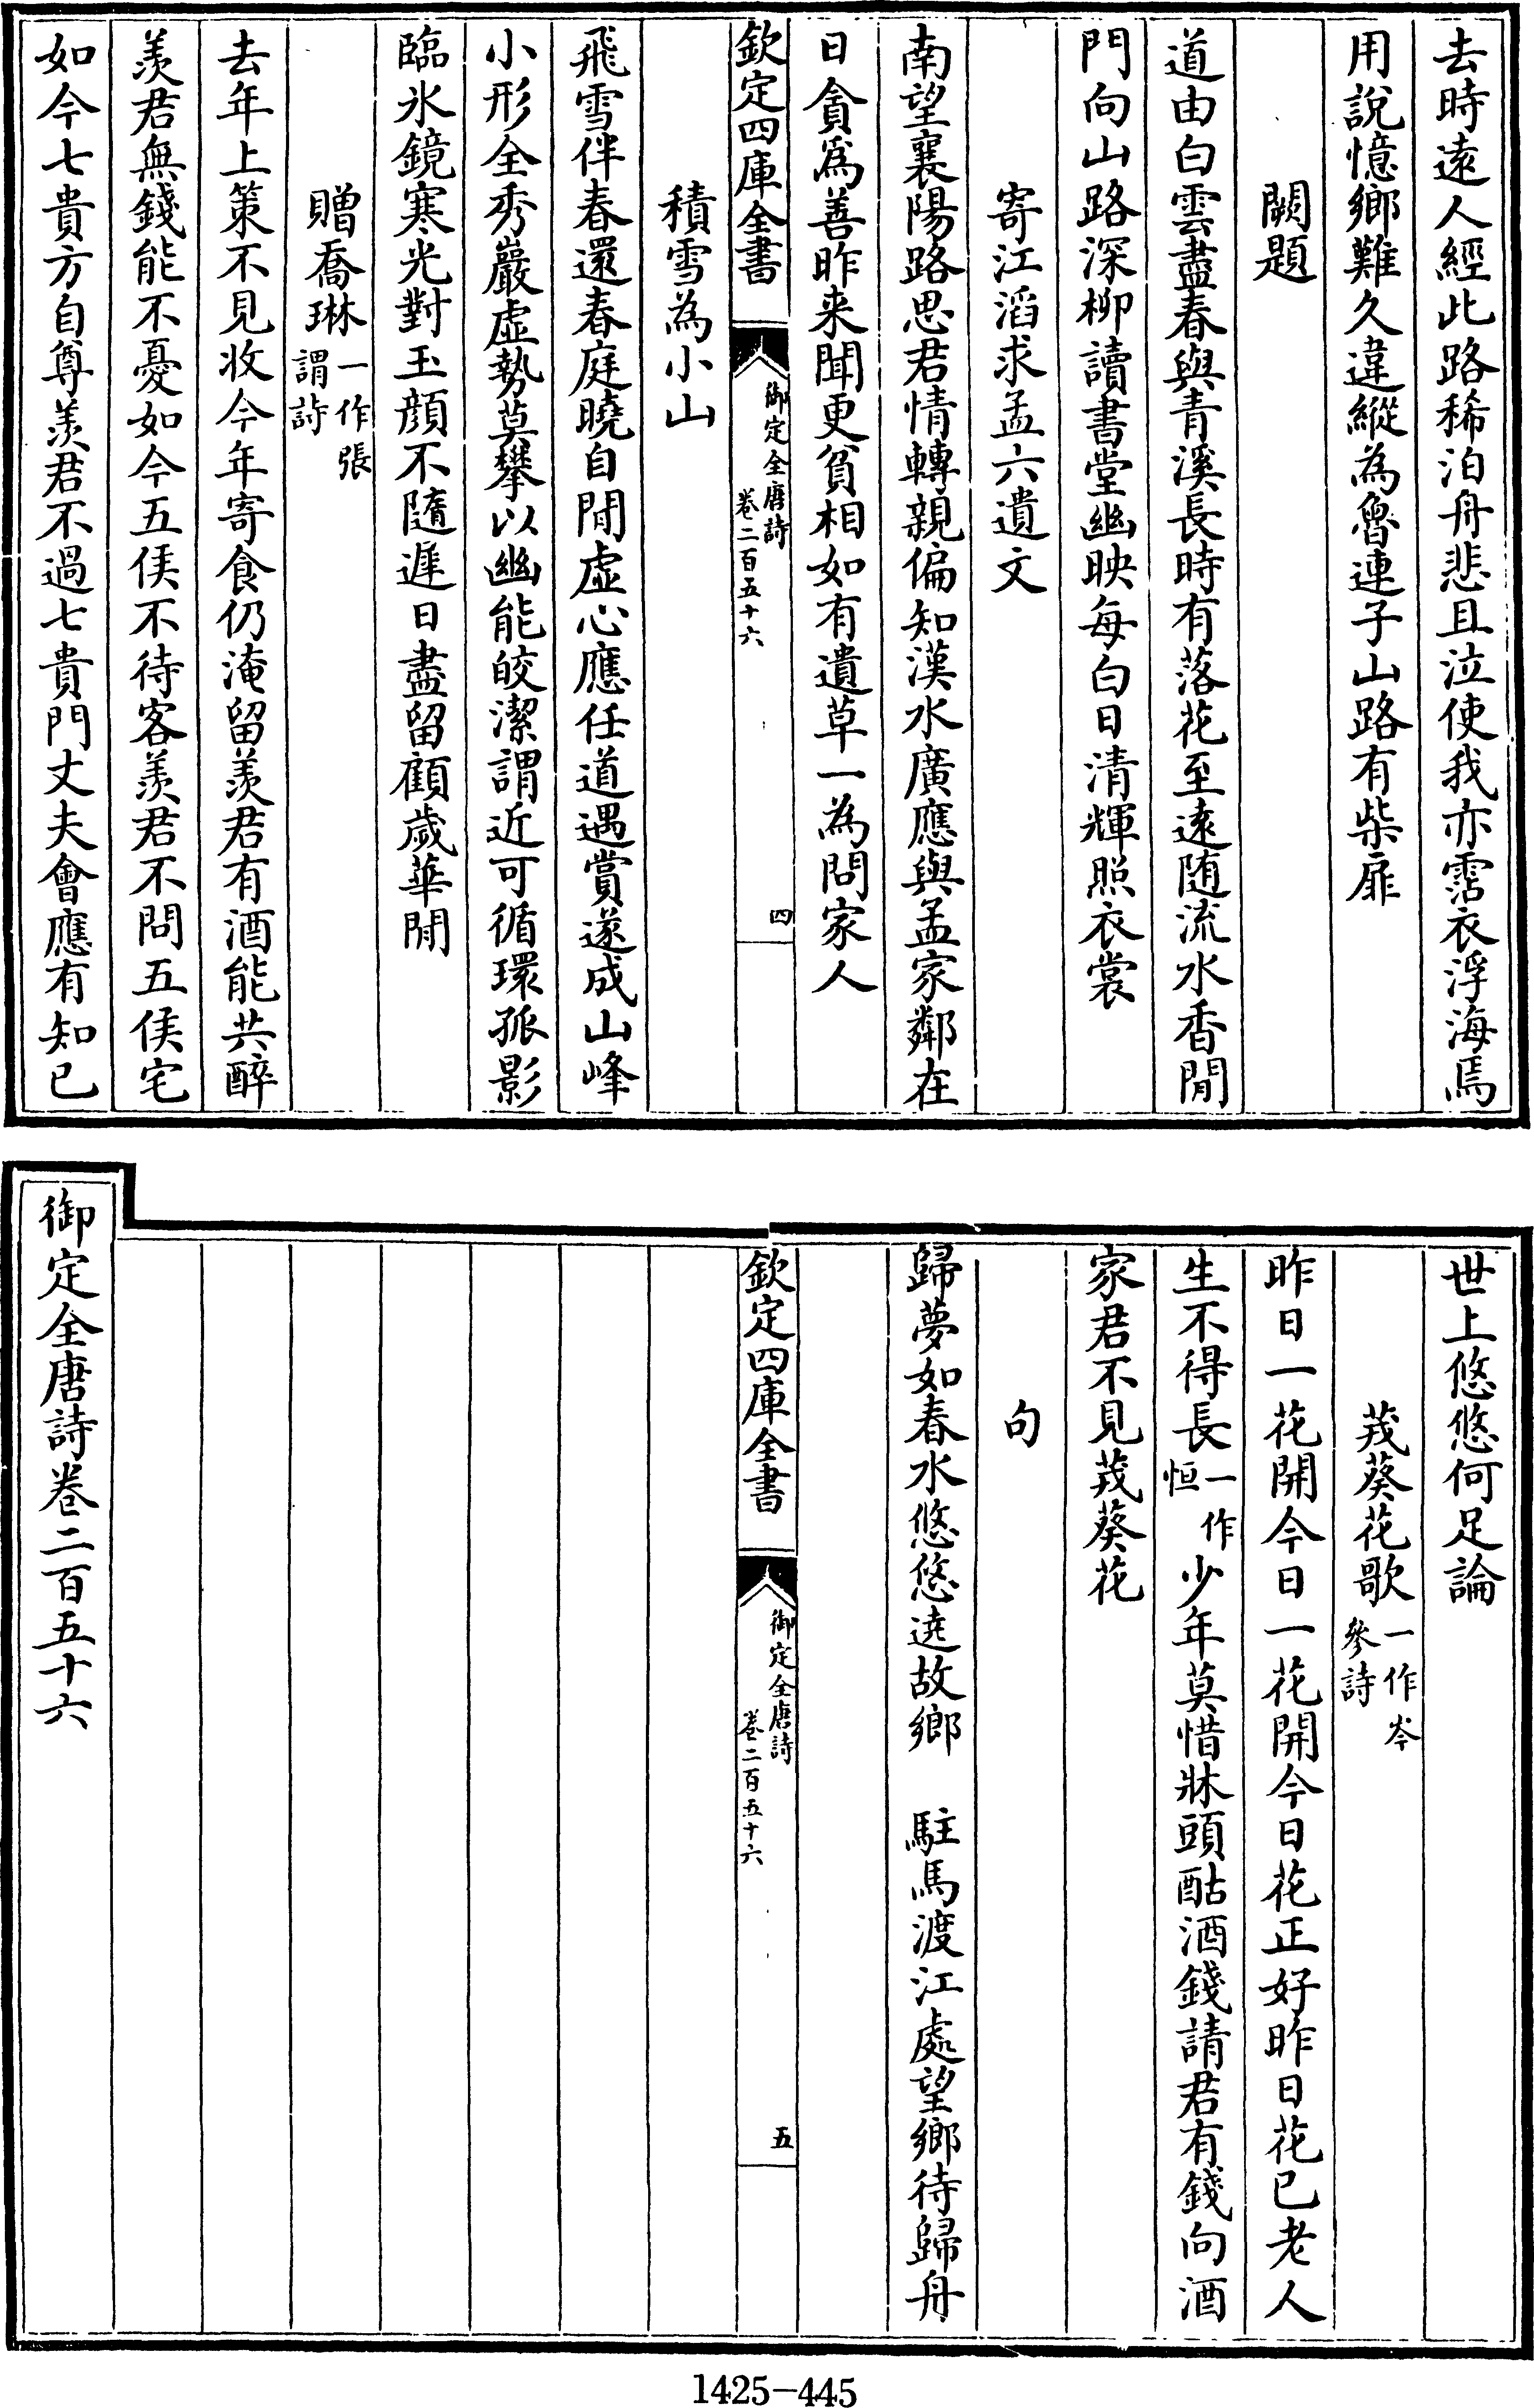 去時遠人經此路稀泊舟悲且泣使我亦霑衣浮海焉
用說憶鄉難久違縱為魯連子山路有柴扉
闕題
道由白雲盡春與青溪長時有落花至遠随流水香閒
門向山路深柳讀書堂幽映每白日清輝照衣裳
寄江滔求孟六遺文
南望襄陽路思君情轉親偏知漢水廣應與孟家鄰在
日貪為善昨来聞更貧相如有遺草一為問家人
欽定四庫全書
御定全唐詩
卷二百五十六
四
積雪為小山
飛雪伴春還春庭曉自閒虛心應任道遇賞遂成山峰
小形全秀巖虛勢莫攀以幽能皎潔謂近可循環孤影
臨氷鏡寒光對玉顔不隨遲日盡留顧歲華閒
贈喬琳一作張
謂詩
去年上策不見收今年寄食仍淹留羨君有酒能共醉
羨君無錢能不憂如今五侯不待客羨君不問五侯宅
如今七貴方自尊羨君不過七貴門丈夫會應有知己
世上悠悠何足論
茙葵花歌一作岑
參詩
昨日一花開今日一花開今日花正好昨日花已老人
生不得長一作
恒少年莫惜牀頭酤酒錢請君有錢向酒
家君不見茙葵花
句
歸夢如春水悠悠遶故鄉　駐馬渡江處望鄉待歸舟
欽定四庫全書
御定全唐詩
卷二百五十六
五
御定全唐詩卷二百五十六
1425-445